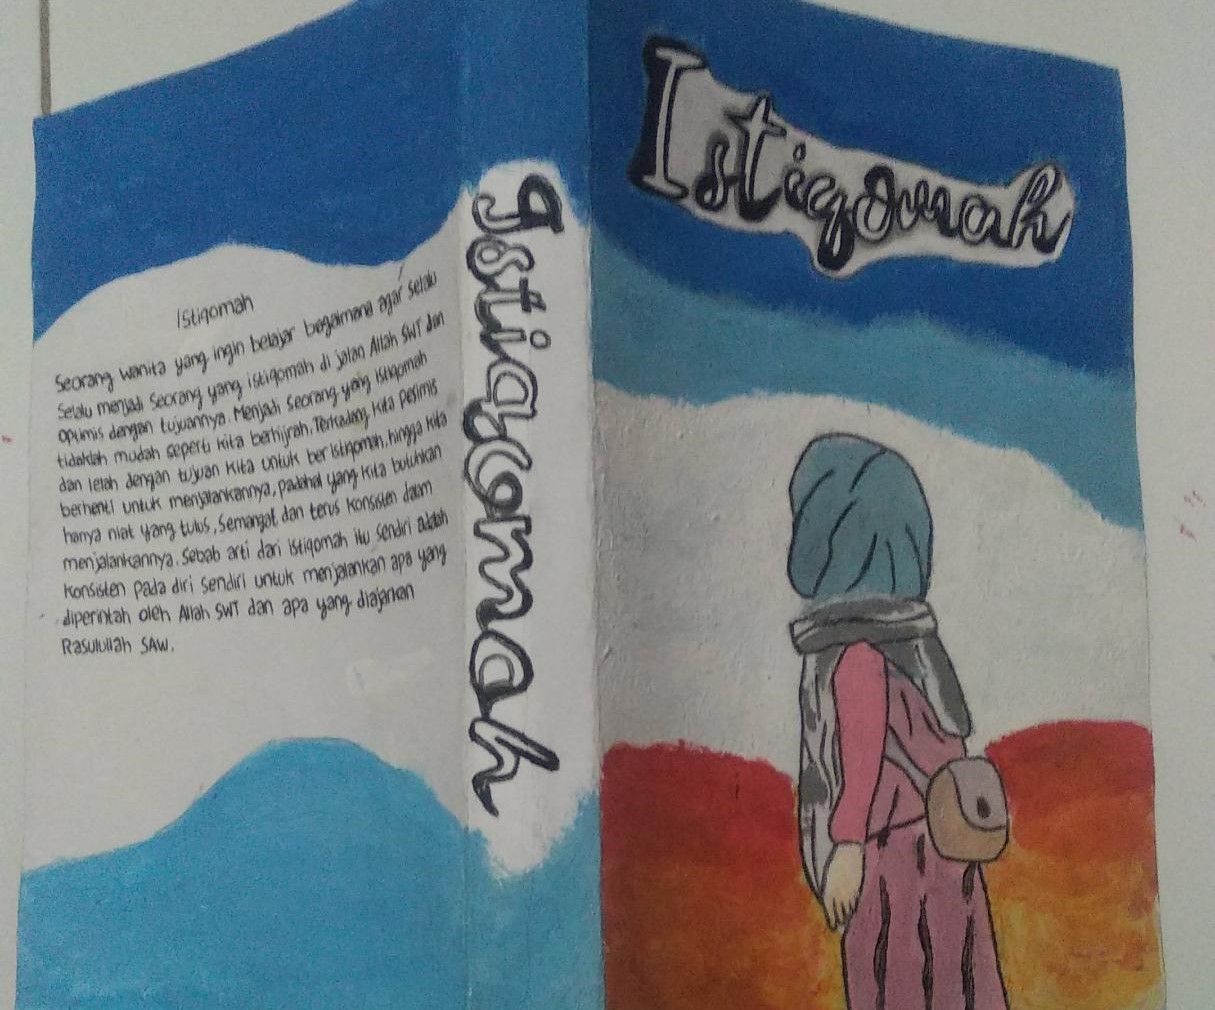 Istiqomah
Seorang wanita yang ingin belajar bagaimana agar selalu
Selalu menjadi seorang yang istiqomah di jalan Allah SWT dan
Optimis dengan tujuannya. Menjadi seorang yang istiqomah
tidaklah mudah seperti kita berhijrah. Terkadang kita pesimis
dan lelah dengan tujuan kita untuk ber istiqomah, hingga kita
berhenti untuk menjalankannya, padahal yang kita butuhkan
hanya niat yang tulus, Semangat dan terus konsisten dalam
menjalankannya. Sebab arti dari istiqomah itu sendiri adalah
Konsisten pada diri sendiri untuk menjalankan apa yang
diperintah oleh Allah SWT dan apa yang diajarkan
Rasulullah SAW.
Istiqomah
Istiqomah